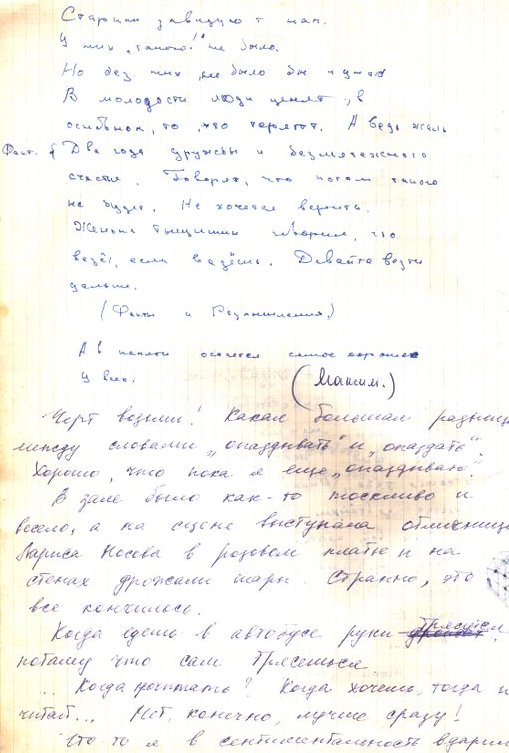 Старики завидуют нам.
У них „такого!" не было.
Но без них, не было бы и нас
В молодости люди ценят, в
основном, то, что теряют. А ведь жаль
Факт. { Два года дружбы и безмятежного
счастья. Говорят, что потом такого
не будет. Не хочется верить.
Женька говорил, что
везёт, если везёшь. Давайте везти
дальше.
(Факты и Размышления)
А в памяти остается самое хорошее
у всех.
(Максим.)
Черт возьми! Какая большая разница
между словами „опаздывать" и „опоздать".
Хорошо, что пока я еще „опаздываю".
В зале было как-то тоскливо и
весело, а на сцене выступала отличница
Лариса Носова в розовом платье и на
стенах дрожали шары. Странно, это
все кончилось.
Когда едешь в автобусе руки трясутся
потому что сам трясешься
... Когда почитать? Когда хочешь, тогда и
читай... Нет, конечно, лучше сразу!
Что-то я в сентиментальность ударил